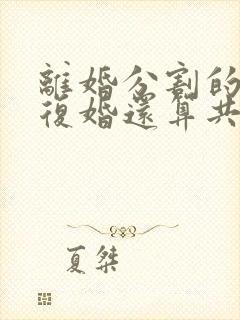 離婚分割的
復婚還算共
夏桀